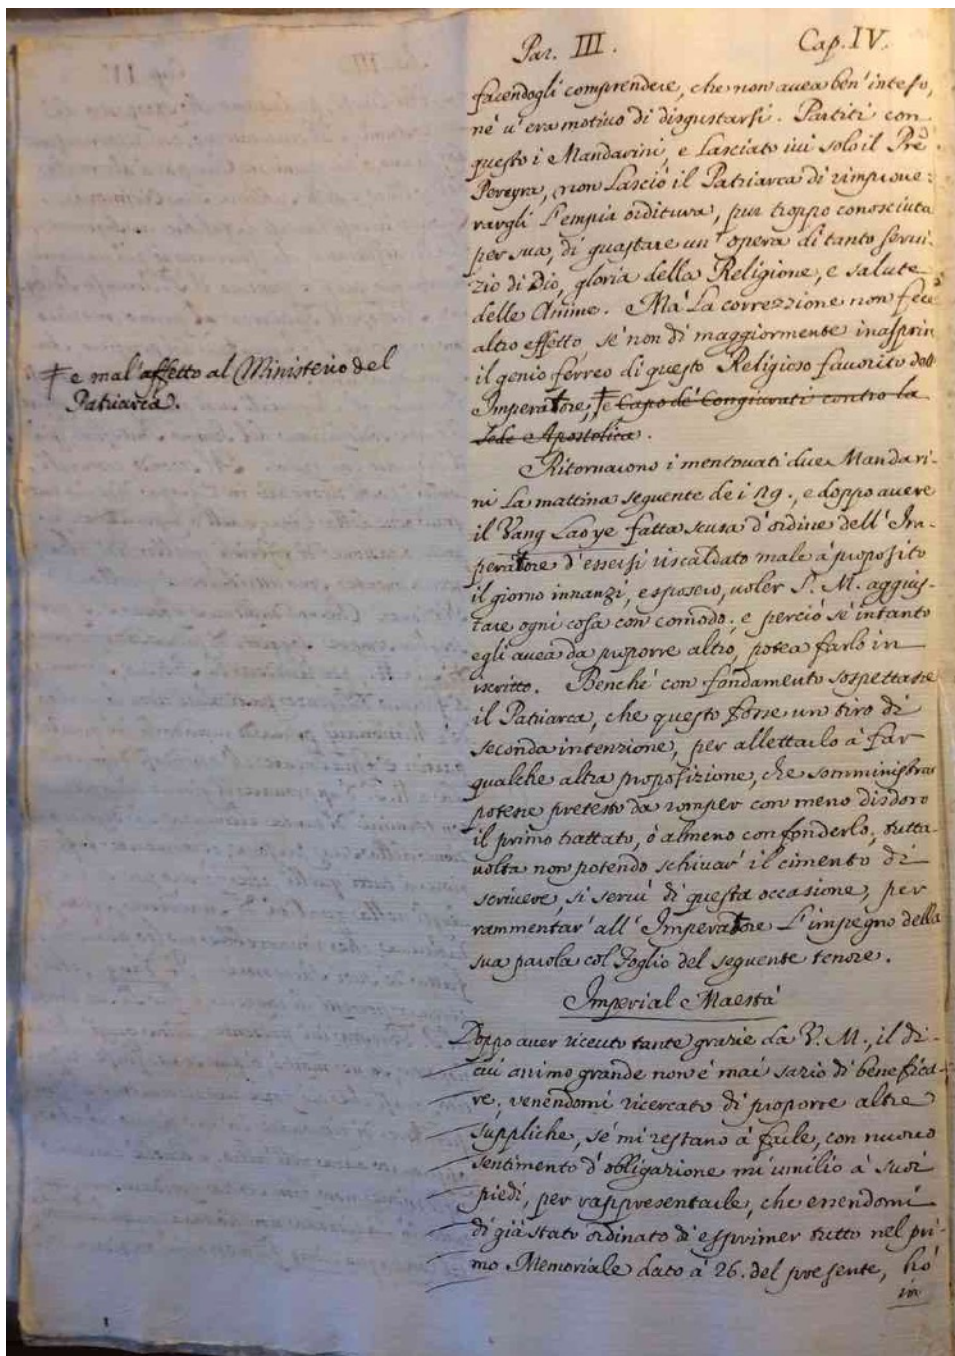 Par. III. Cap. IV.
facendogli comprendere, che non avea ben' inteso,
nè v'era motivo di disgustarsi. Partiti con
questo i Mandarini, e Lasciato ivi solo il Prẽ
Pereyra, non Lasciò il Patriarca di rimprove:
rargli L'empia orditura, pur troppo conosciuta
per sua, di guastare un' opera di tanto servi:
zio di Dio, gloria della Religione, e salute
delle Anime. Mà La correzzione non fece
altro effetto, sè non di maggiormente inasprir
il genio ferreo di questo Religioso favorito dell'
Imperatore, ‡ e Capo de' Congiurati contro la
Sede Apostolica.
‡ e mal' affetto al Ministerio del
Patriarca.
Ritornarono i mentovati due Mandari-
ni La mattina seguente de i 29., e doppo avere
il Vang Laoye fatta scusa d'ordine dell' Im-
peratore d'essersi riscaldato male à proposito
il giorno innanzi, esposero, voler S. M. aggius-
tare ogni cosa con comodo; e perciò sè intanto
egli avea da proporre altro, potea farlo in
iscritto. Benche' con fondamento sospettasse
il Patriarca, che questo fosse un tiro di
seconda intenzione, per allettarlo à far
qualche altra proposizione, che somministrar
potesse pretesto da romper con meno disdoro
il primo trattato, ò almeno confonderlo; tutta-
volta non potendo schivar' il cimento di
scrivere, si servì di questa occasione, per
rammentar' all' Imperatore L'impegno della
sua parola col Foglio del seguente tenore.
Imperial Maestà
Doppo aver ricevuto tante grazie da V. M., il di
cui animo grande non è mai sazio di benefica-
re; venendomi ricercato di proporre altre
suppliche, sé mi restano à farle, con nuovo
sentimento d'obligazione mi umilio à suoi
piedi, per rappresentarle, che essendomi
di già stato ordinato di esprimer tutto nel pri-
mo Memoriale dato à 26. del presente, hó
in